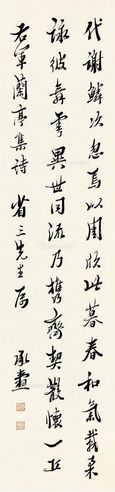 代谢鳞次忽焉以周欣此暮春和氣載柔
詠彼舞雩異世同流乃携齊契散懷一丘
右軍蘭亭集詩 省三先生屬 承燾